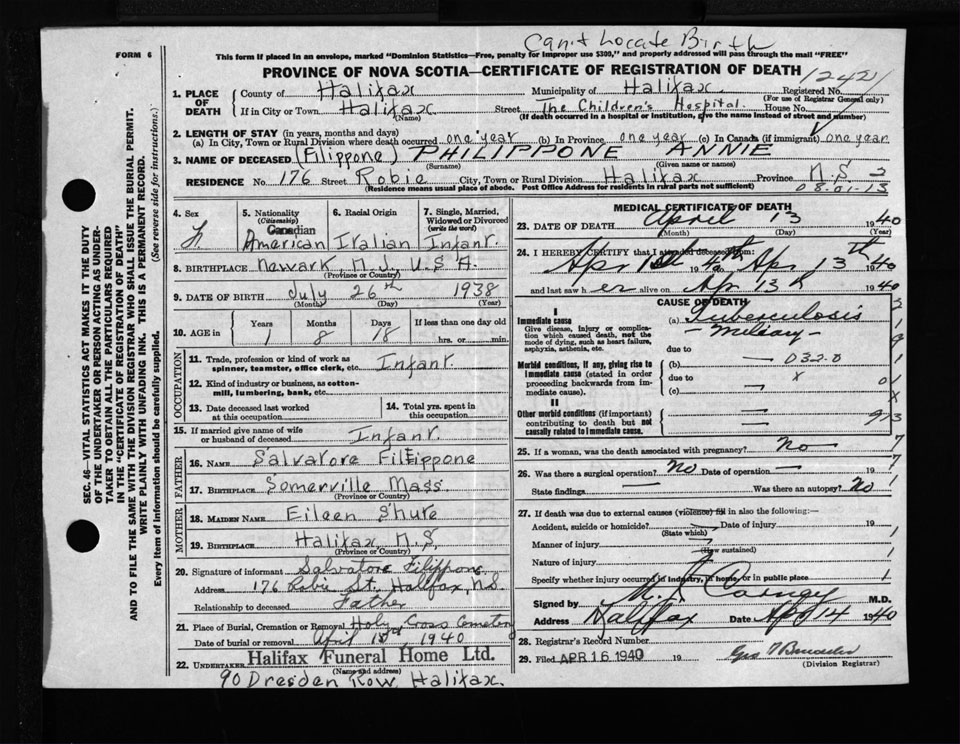 Can't Locate Birth
FORM 6
This form if placed in an envelope, marked "Dominion Statistics—Free, penalty for improper use $300," and properly addressed will pass through the mail "FREE"
PROVINCE OF NOVA SCOTIA—CERTIFICATE OF REGISTRATION OF DEATH
1242
1. PLACE OF DEATH
County of Halifax Municipality of Halifax Registered No.
(For use of Registrar General only)
If in City or Town Halifax Street The Children's Hospital. House No.
(Name) (If death occurred in a hospital or institution, give the name instead of street and number)
2. LENGTH OF STAY (in years, months and days)
(a) In City, Town or Rural Division where death occurred one year (b) In Province one year (c) In Canada (if immigrant) one year
3. NAME OF DECEASED (Filippone) PHILIPPONE ANNIE
(Surname) (Given name or names)
RESIDENCE No. 176 Street Robie City, Town or Rural Division Halifax Province N.S. 2
(Residence means usual place of abode. Post Office Address for residents in rural parts not sufficient) 08.01-13
4. Sex
F.
5. Nationality (Citizenship)
Canadian
American
6. Racial Origin
Italian
7. Single, Married, Widowed or Divorced (write the word)
Infant.
8. BIRTHPLACE Newark, N.J., U.S.A.
(Province or Country)
9. DATE OF BIRTH July 26th 1938
(Month) (Day) (Year)
10. AGE in Years Months Days If less than one day old
1 8 18 hrs. or min.
OCCUPATION
11. Trade, profession or kind of work as spinner, teamster, office clerk, etc. Infant.
12. Kind of industry or business, as cotton-mill, lumbering, bank, etc.
13. Date deceased last worked at this occupation
14. Total yrs. spent in this occupation
15. If married give name of wife or husband of deceased Infant.
FATHER
16. Name Salvatore Filippone
17. Birthplace Somerville Mass.
(Province or Country)
MOTHER
18. Maiden Name Eileen Shute
19. Birthplace Halifax, N.S.
(Province or Country)
20. Signature of informant Salvatore Filippone
Address 176 Robie St. Halifax, N.S.
Relationship to deceased Father
21. Place of Burial, Cremation or Removal Holy Cross Cemetery
Date of burial or removal April 15th 1940
22. Undertaker Halifax Funeral Home Ltd.
(Name and address)
90 Dresden Row, Halifax.
MEDICAL CERTIFICATE OF DEATH
23. DATE OF DEATH April 13 1940
(Month) (Day) (Year)
24. I HEREBY CERTIFY that I attended deceased from:
4th Ap. 13th 1940
and last saw her alive on Ap 13th 1940
CAUSE OF DEATH
I
Immediate cause
Give disease, injury or complication which caused death, not the mode of dying, such as heart failure, asphyxia, asthenia, etc.
(a) Tuberculosis
- Miliary -
due to
Morbid conditions, if any, giving rise to immediate cause (stated in order proceeding backwards from immediate cause).
(b) — 032.0
due to x
(c) —
II
Other morbid conditions (if important) contributing to death but not causally related to immediate cause.
25. If a woman, was the death associated with pregnancy? No —
26. Was there a surgical operation? No Date of operation — 19
State findings — Was there an autopsy? No
27. If death was due to external causes (violence) fill in also the following:—
Accident, suicide or homicide? Date of injury 19
(State which)
Manner of injury
(How sustained)
Nature of injury
Specify whether injury occurred in industry, in home, or in public place
Signed by M.D.
Address Halifax Date Apr 14 1940
28. Registrar's Record Number
29. Filed APR 16 1940 19
(Division Registrar)
SEC. 46—VITAL STATISTICS ACT MAKES IT THE DUTY OF THE UNDERTAKER OR PERSON ACTING AS UNDERTAKER TO OBTAIN ALL THE PARTICULARS REQUIRED IN THE "CERTIFICATE OF REGISTRATION OF DEATH" AND TO FILE THE SAME WITH THE DIVISION REGISTRAR WHO SHALL ISSUE THE BURIAL PERMIT.
WRITE PLAINLY WITH UNFADING INK. THIS IS A PERMANENT RECORD.
Every item of information should be carefully supplied. (See reverse side for instructions.)